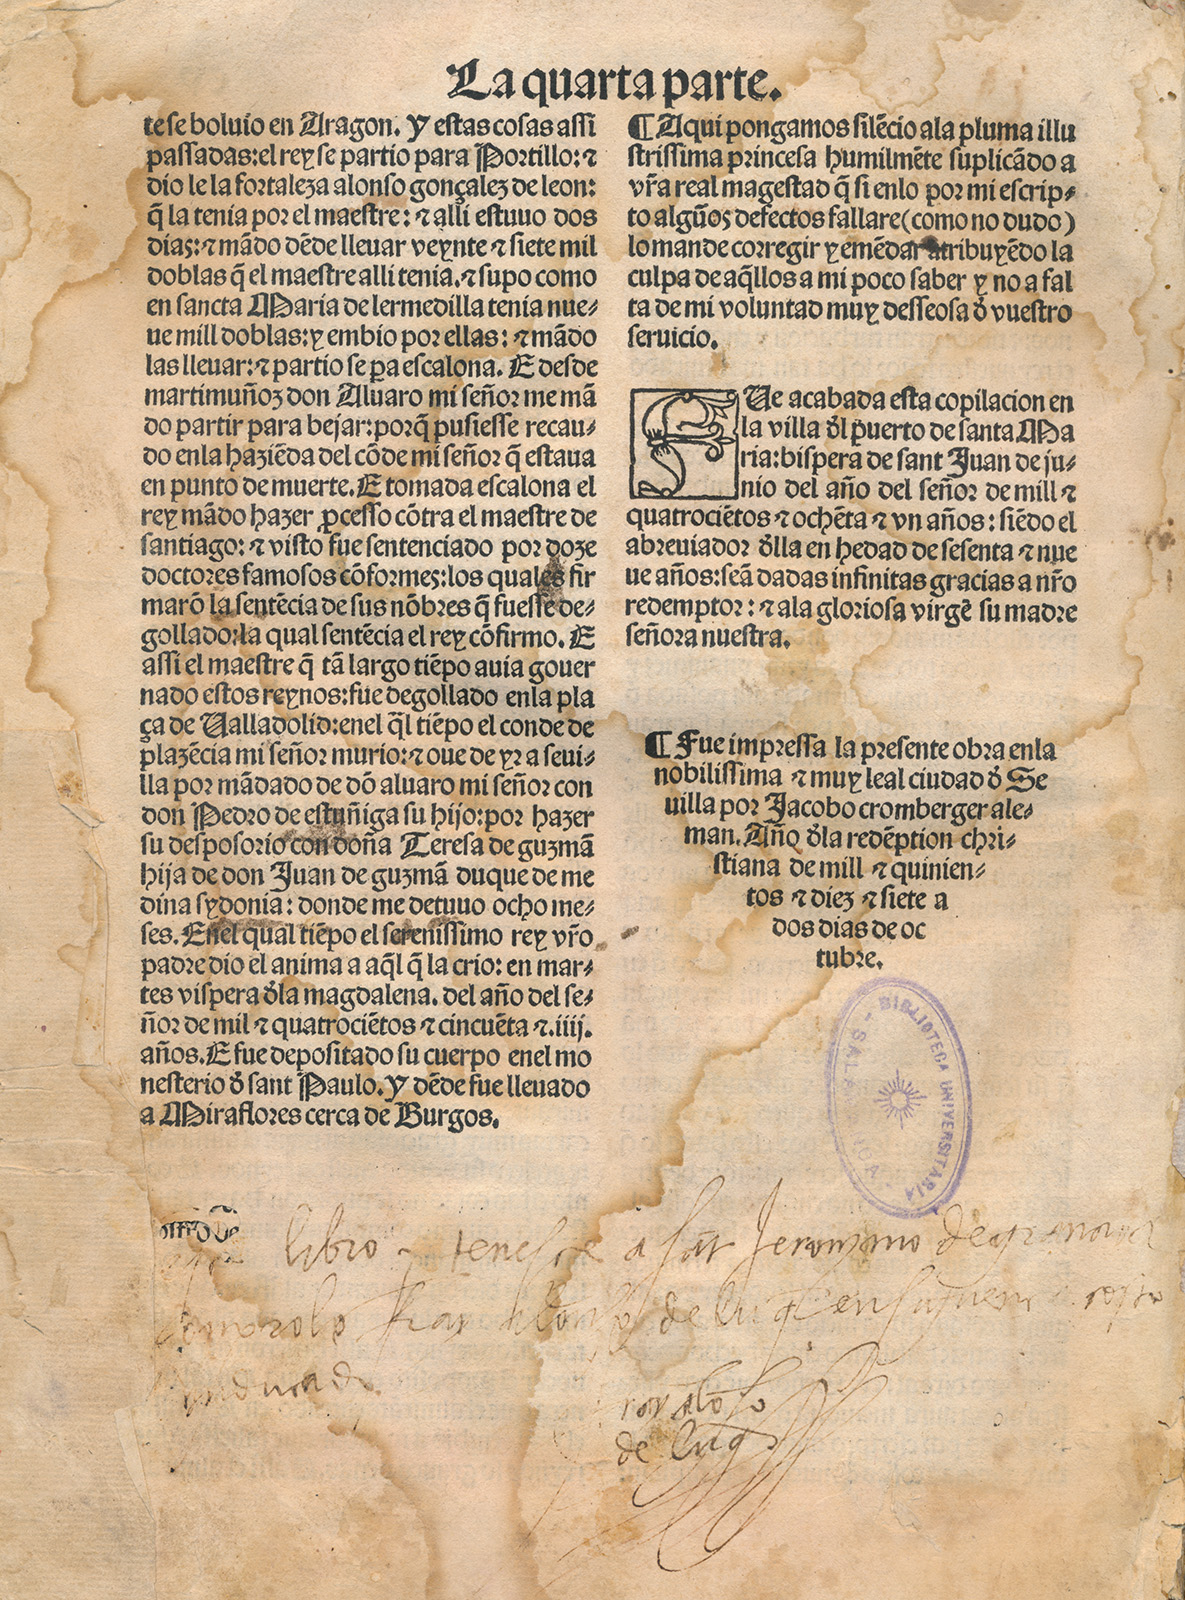 La quarta parte.
tese boluio en Aragon. Y estas cosas assi
passadas: el rey se partio para Portillo: ⁊
dio le la fortaleza alonso gonçalez de leon:
q̃ la tenia por el maestre: ⁊ alli estuuo dos
dias: ⁊ mãdo dẽde lleuar veynte ⁊ siete mil
doblas q̃ el maestre alli tenia. ⁊ supo como
en sancta Maria de lermedilla tenia nue-
ue mill doblas: y embio por ellas: ⁊ mãdo
las lleuar: ⁊ partio se ꝑa escalona. E desde
martimuñoz don Aluaro mi señor me mã
do partir para bejar: porq̃ pusiesse recau-
do enla haziẽda del cõde mi señor q̃ estaua
en punto de muerte. E tomada escalona el
rey mãdo hazer ꝓcesso cõtra el maestre de
santiago: ⁊ visto fue sentenciado por doze
doctores famosos cõformes: los quales fir
marõ la sentẽcia de sus nõbres q̃ fuesse de-
gollado: la qual sentẽcia el rey cõfirmo. E
assi el maestre q̃ tã largo tiẽpo auia gouer
nado estos reynos: fue degollado enla pla
ça de Ualladolid: enel q̃l tiẽpo el conde de
plazẽcia mi señor murio: ⁊ oue de yr a seui-
lla por mãdado de dõ aluaro mi señor con
don Pedro de estuñiga su hijo: por hazer
su desposorio con doña Teresa de guzmã
hija de don Juan de guzmã duque de me
dina sydonia: donde me detuuo ocho me-
ses. Enel qual tiẽpo el serenissimo rey vr̃o
padre dio el anima a aq̃l q̃ la crio: en mar-
tes vispera d̃la magdalena. del año del se-
ñor de mil ⁊ quatrociẽtos ⁊ cincuẽta ⁊ .iiij.
años. E fue depositado su cuerpo enel mo
nesterio d̃ sant Paulo. Y dẽde fue lleuado
a Miraflores cerca de Burgos.
¶ Aqui pongamos silẽcio ala pluma illu
strissima princesa humilmẽte suplicãdo a
vr̃a real magestad q̃ si enlo por mi escrip-
to algũos defectos fallare (como no dudo)
lo mande corregir y emẽdar atribuyẽdo la
culpa de aq̃llos a mi poco saber y no a fal
ta de mi voluntad muy desseosa d̃ vuestro
seruicio.
FUe acabada esta copilacion en
la villa d̃l puerto de santa Ma
ria: bispera de sant Juan de ju-
nio del año del señor de mill ⁊
quatrociẽtos ⁊ ochẽta ⁊ vn años: siẽdo el
abreuiador d̃lla en hedad de sesenta ⁊ nue
ue años: seã dadas infinitas gracias a nr̃o
redemptor: ⁊ ala gloriosa virgẽ su madre
señora nuestra.
¶ Fue impressa la presente obra enla
nobilissima ⁊ muy leal ciudad d̃ Se
uilla por Jacobo cromberger ale-
man. Año d̃la redẽption chri-
stiana de mill ⁊ quinien-
tos ⁊ diez ⁊ siete a
dos dias de oc
tubre.
BIBLIOTECA UNIVERSITARIA - SALAMANCA -
libro a sãt Jeronymo de granada
de luq̃
de luq̃